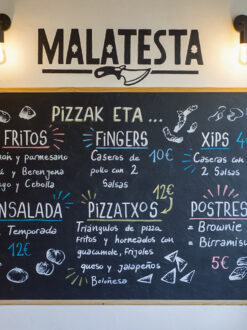 MALATESTA
PiZZAK ETA ...
FRiTOS
y parmesano
y Berenjena
y Cebolla
FiNGERS
Caseros de 10€
pollo con 2
Salsas
XiPS
Caseras con
2 Salsas
Temporada
12€
PiZZATXOS 12€
Triángulos de pizza
Fritos y horneados con
guacamole, Frijoles
queso y jalapeños
Boloñesa
POSTRES
= Brownie
= Birramisu
5€